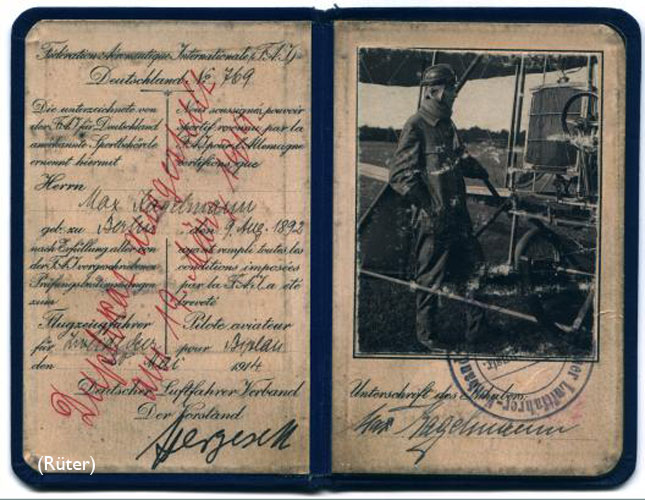 Fédération Aéronautique Internationale (F.A.I.)
Deutschland No 769
Die unterzeichnete von
der F.A.I. für Deutschland
anerkannte Sportbehörde
ernennt hiermit
Nous soussignés pouvoir
sportif reconnu par la
F.A.I. pour l'Allemagne
certifions que
Herrn
Max Hagelmann
geb. zu Berlin den 9. Aug. 1892
nach Erfüllung aller von
der F.A.I. vorgeschriebenen
Prüfungsbedingungen
zum
ayant rempli toutes les
conditions imposées
par la F.A.I. a été
breveté
Flugzeugführer Pilote aviateur
für Zweidecker pour Biplan
den Mai 1914
Deutscher Luftfahrer Verband
Der Vorstand
Hergesell
Duplikat ausgestellt
12. März
(Rüter)
Unterschrift des Inhabers:
Max Hagelmann
Deutscher Luftfahrer-Verband